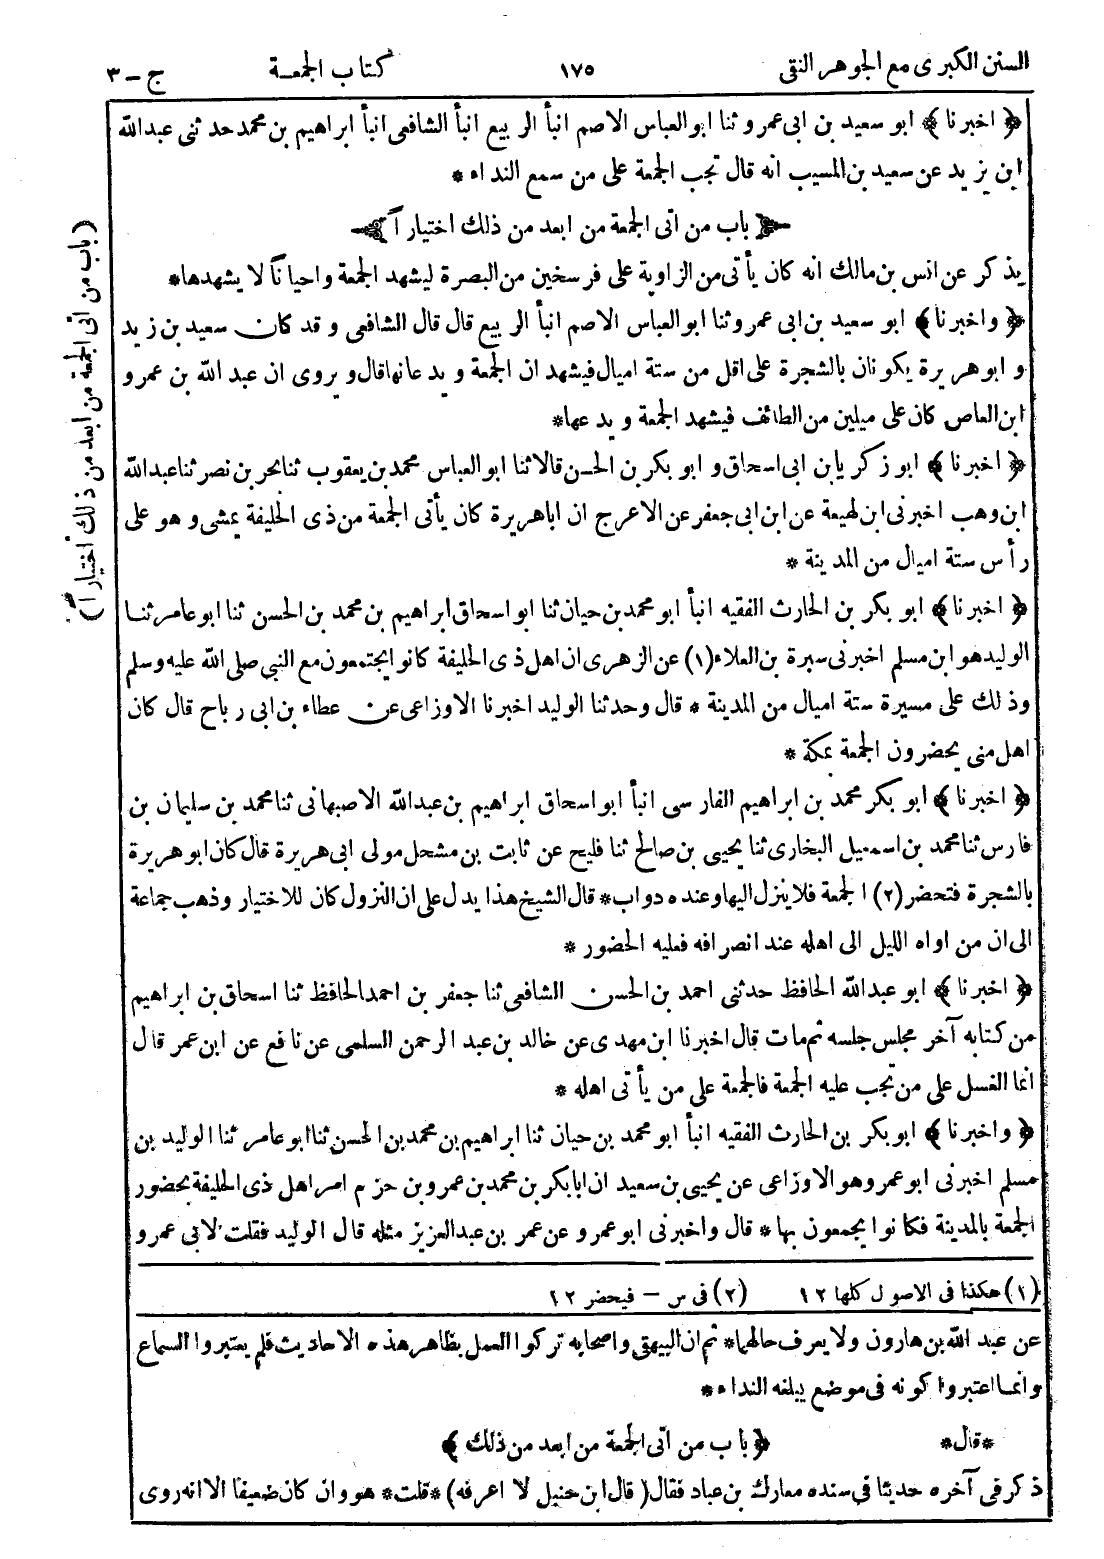 السنن الكبرى مع الجوهر النقى ١٧٥ كتاب الجمعة ج - ٣
﴿ اخبرنا ﴾ ابو سعيد بن ابى عمرو ثنا ابو العباس الاصم انبأ الربيع انبأ الشافعى انبأ ابراهيم بن محمد حدثنى عبدالله
ابن يزيد عن سعيد بن المسيب انه قال تجب الجمعة على من سمع النداء *
باب من اتى الجمعة من ابعد من ذلك اختياراً
يذكر عن انس بن مالك انه كان يأتى من الزاوية على فرسخين من البصرة ليشهد الجمعة واحياناً لا يشهدها*
﴿ واخبرنا ﴾ ابو سعيد بن ابى عمرو ثنا ابو العباس الاصم انبأ الربيع قال قال الشافعى وقد كان سعيد بن زيد
و ابوهريرة يكونان بالشجرة على اقل من ستة اميال فيشهدان الجمعة ويدعانها قال ويروى ان عبد الله بن عمرو
ابن العاص كان على ميلين من الطائف فيشهد الجمعة ويدعها*
﴿ اخبرنا ﴾ ابو زكريا بن ابى اسحاق و ابو بكر بن الحسن قالا ثنا ابو العباس محمد بن يعقوب ثنا بحر بن نصر ثنا عبدالله
ابن وهب اخبرنى ابن لهيعة عن ابن ابى جعفر عن الاعرج ان اباهريرة كان يأتى الجمعة من ذى الحليفة يمشى و هو على
رأس ستة اميال من المدينة *
﴿ اخبرنا ﴾ ابو بكر بن الحارث الفقيه انبأ ابو محمد بن حيان ثنا ابو اسحاق ابراهيم بن محمد بن الحسن ثنا ابو عامر ثنا
الوليد هو ابن مسلم اخبرنى سبرة بن العلاء (١) عن الزهرى ان اهل ذى الحليفة كانوا يجتمعون مع النبي صلى الله عليه وسلم
وذلك على مسيرة ستة اميال من المدينة * قال وحدثنا الوليد اخبرنا الاوزاعى عن عطاء بن ابى رباح قال كان
اهل منى يحضرون الجمعة بمكة *
﴿ اخبرنا ﴾ ابو بكر محمد بن ابراهيم الفارسى انبأ ابو اسحاق ابراهيم بن عبدالله الاصبهانى ثنا محمد بن سليمان بن
فارس ثنا محمد بن اسمعيل البخارى ثنا يحيى بن صالح ثنا فليح عن ثابت بن مشحل مولى ابى هريرة قال كان ابو هريرة
بالشجرة فتحضر (٢) الجمعة فلا ينزل اليها وعنده دواب* قال الشيخ هذا يدل على ان النزول كان للاختيار وذهب جماعة
الى ان من اواه الليل الى اهله عند انصرافه فعليه الحضور *
﴿ اخبرنا ﴾ ابو عبدالله الحافظ حدثنى احمد بن الحسن الشافعى ثنا جعفر بن احمد الحافظ ثنا اسحاق بن ابراهيم
من كتابه آخر مجلس جلسه ثم مات قال اخبرنا ابن مهدى عن خالد بن عبد الرحمن السلمى عن نافع عن ابن عمر قال
انما الغسل على من تجب عليه الجمعة فالجمعة على من يأتى اهله *
﴿ واخبرنا ﴾ ابو بكر بن الحارث الفقيه انبأ ابو محمد بن حيان ثنا ابراهيم بن محمد بن الحسن ثنا ابو عامر ثنا الوليد بن
مسلم اخبرنى ابو عمرو وهو الاوزاعى عن يحيى بن سعيد ان ابابكر بن محمد بن عمرو بن حزم امر اهل ذى الحليفة بحضور
الجمعة بالمدينة فكانوا يجمعون بها* قال واخبرنى ابو عمرو عن عمر بن عبدالعزيز مثله قال الوليد فقلت لابى عمرو
(١) هكذا فى الاصول كلها ١٢ (٢) فى س - فيحضر ١٢
عن عبد الله بن هارون ولا يعرف حالهما* ثم ان البيهقى واصحابه تركوا العمل بظاهر هذه الاحاديث فلم يعتبروا السماع
وانما اعتبروا كونه فى موضع يبلغه النداء*
*قال* ﴿ باب من اتى الجمعة من ابعد من ذلك ﴾
ذكر فى آخره حديثا فى سنده معارك بن عباد فقال ( قال ابن حنبل لا اعرفه ) *قلت* هو وان كان ضعيفا الا انه روى
(باب من اتى الجمعة من ابعد من ذلك اختياراً)